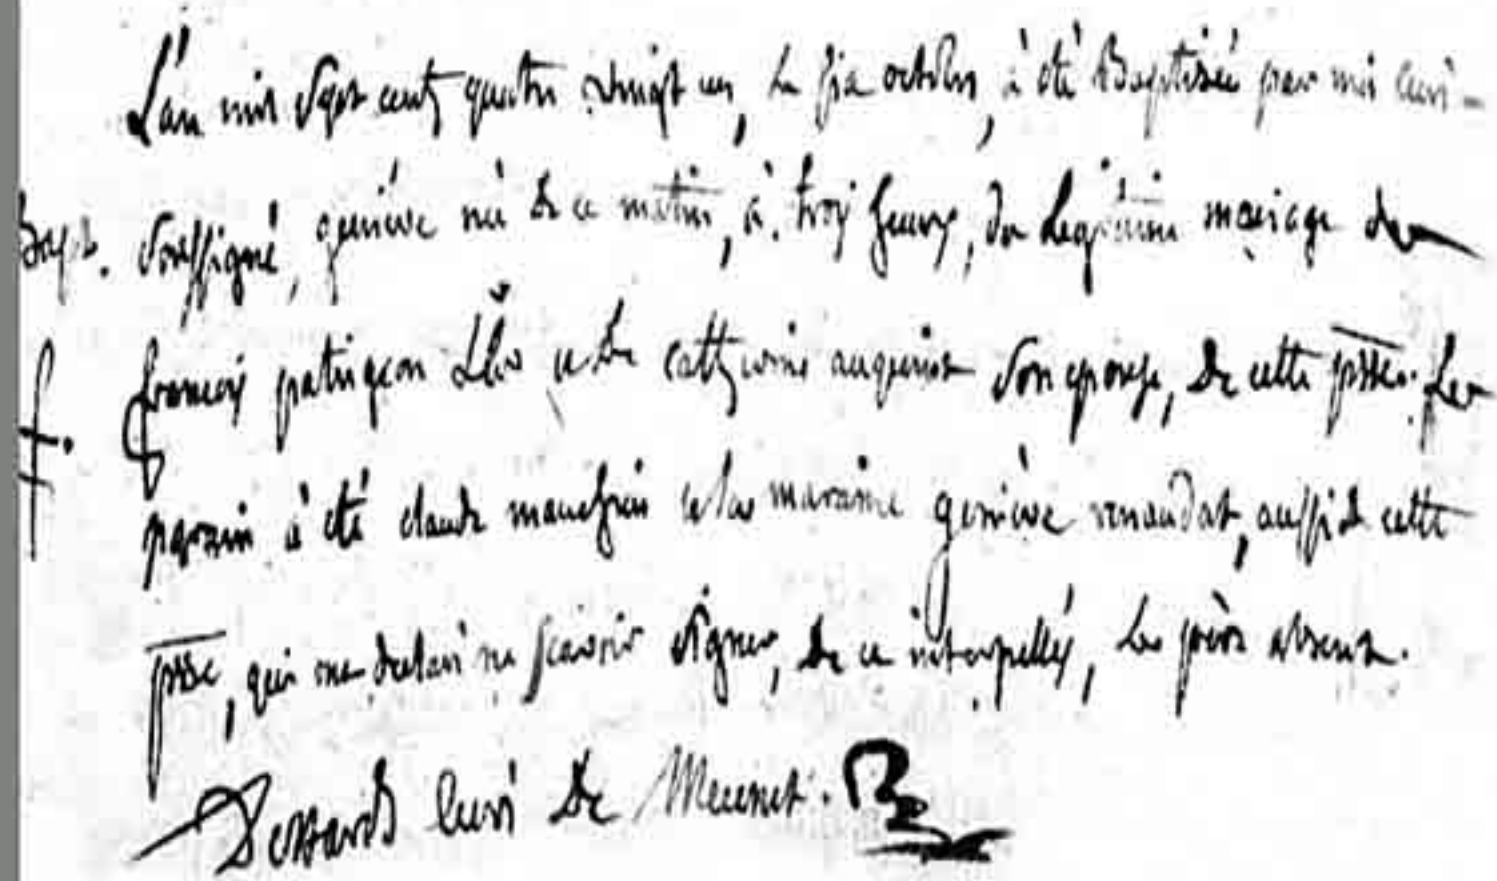 L'an mil sept cent quatre vingt un, le six octobre, à été Baptisée par moi curé
Bapt. soussigné, genieve née de ce matin, à trois heures, du Legitime mariage de
f. francois patrigeon et de catherine son epouse, de cette psse. Le
parain à été claude et la maraine genieve renaudat, aussi de cette
psse, qui ont declaré ne scavoir signer, de ce interpellés, Le père absent.
curé de Mecunet.